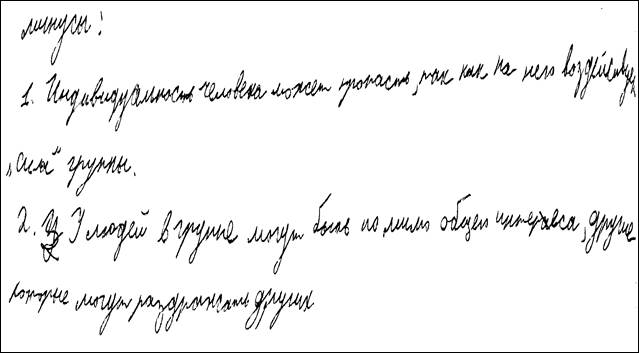 минусы:
1. Индивидуальность человека может пропасть, так как на него воздействует
„сила" группы.
2. У людей в группе могут быть помимо общего интереса, другие
которые могут раздражать других